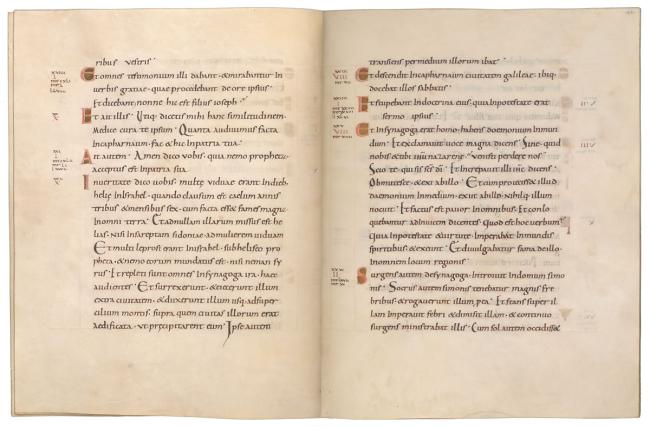 ribus vestris
Et omnes testimonium illi dabant · & mirabantur in
verbis gratiae · quae procedebant de ore ipsius
Et dicebant · nonne hic est filius ioseph
Et ait illis · Utiq; dicetis mihi hanc similitudinem ·
Medice cura te ipsum · Quanta audiuimus facta
incapharnaum · fac & hic inpatria tua ·
Ait autem · Amen dico vobis · quia nemo propheta
acceptus est inpatria sua ·
Inueritate dico uobis · multę viduae erant indieb;
helię Inisrahel · quando clausum est caelum annis
tribus & mensibus sex · cum facta esset fames magna
Inomni terra · & adnullam illarum missus est he
lias · nisi insareptam sidoniae · admulierem uiduam
Et multi leprosi erant Inisrahel · subheliseo pro
pheta · & nemo eorum mundatus est · nisi neman sy
rus · Et repleti sunt omnes Insynagoga ira · haec
audientes · Et surrexerunt · & eiecerunt illum
extra ciuitatem · & duxerunt illum usq; adsuper
cilium montis · supra quem ciuitas illorum erat
aedificata · ut pręcipitarent eum · Ipse autem
transiens per medium illorum ibat ·
Et descendit Incapharnaum ciuitatem galileae · ibiq;
docebat illos sabbatis ·
Et stupebant Indoctrina eius · quia inpotestate erat
sermo ipsius ·
Et Insynagoga erat homo · habens daemonium inmun
dum · & exclamauit uoce magna dicens · Sine · quid
nobis & tibi ihu nazarene · Venisti perdere nos ·
Scio te qui sis sc̄s dī · Et increpauit illi ihc dicens ·
Obmutesce · & exi abillo · Et cum proiecisset illud
daemonium Inmedium · exiit abillo · nihilq; illum
nocuit · Et factus est pauor Inomnibus · Et conlo
quebantur adinuicem dicentes · Quod est hoc uerbum ·
quia Inpotestate & uirtute · Imperat Inmundis
spiritibus · & exeunt · Et diuulgabatur fama deillo ·
Inomnem locum regionis ·
Surgens autem · desynagoga · introiuit Indomum simo
nis · Socrus autem simonis tenebatur magnis fe
bribus · & rogauerunt illum pro ea · Et stans super il
lam Imperauit febri · & dimisit illam · & continuo
surgens ministrabat illis · Cum sol autem occidisset